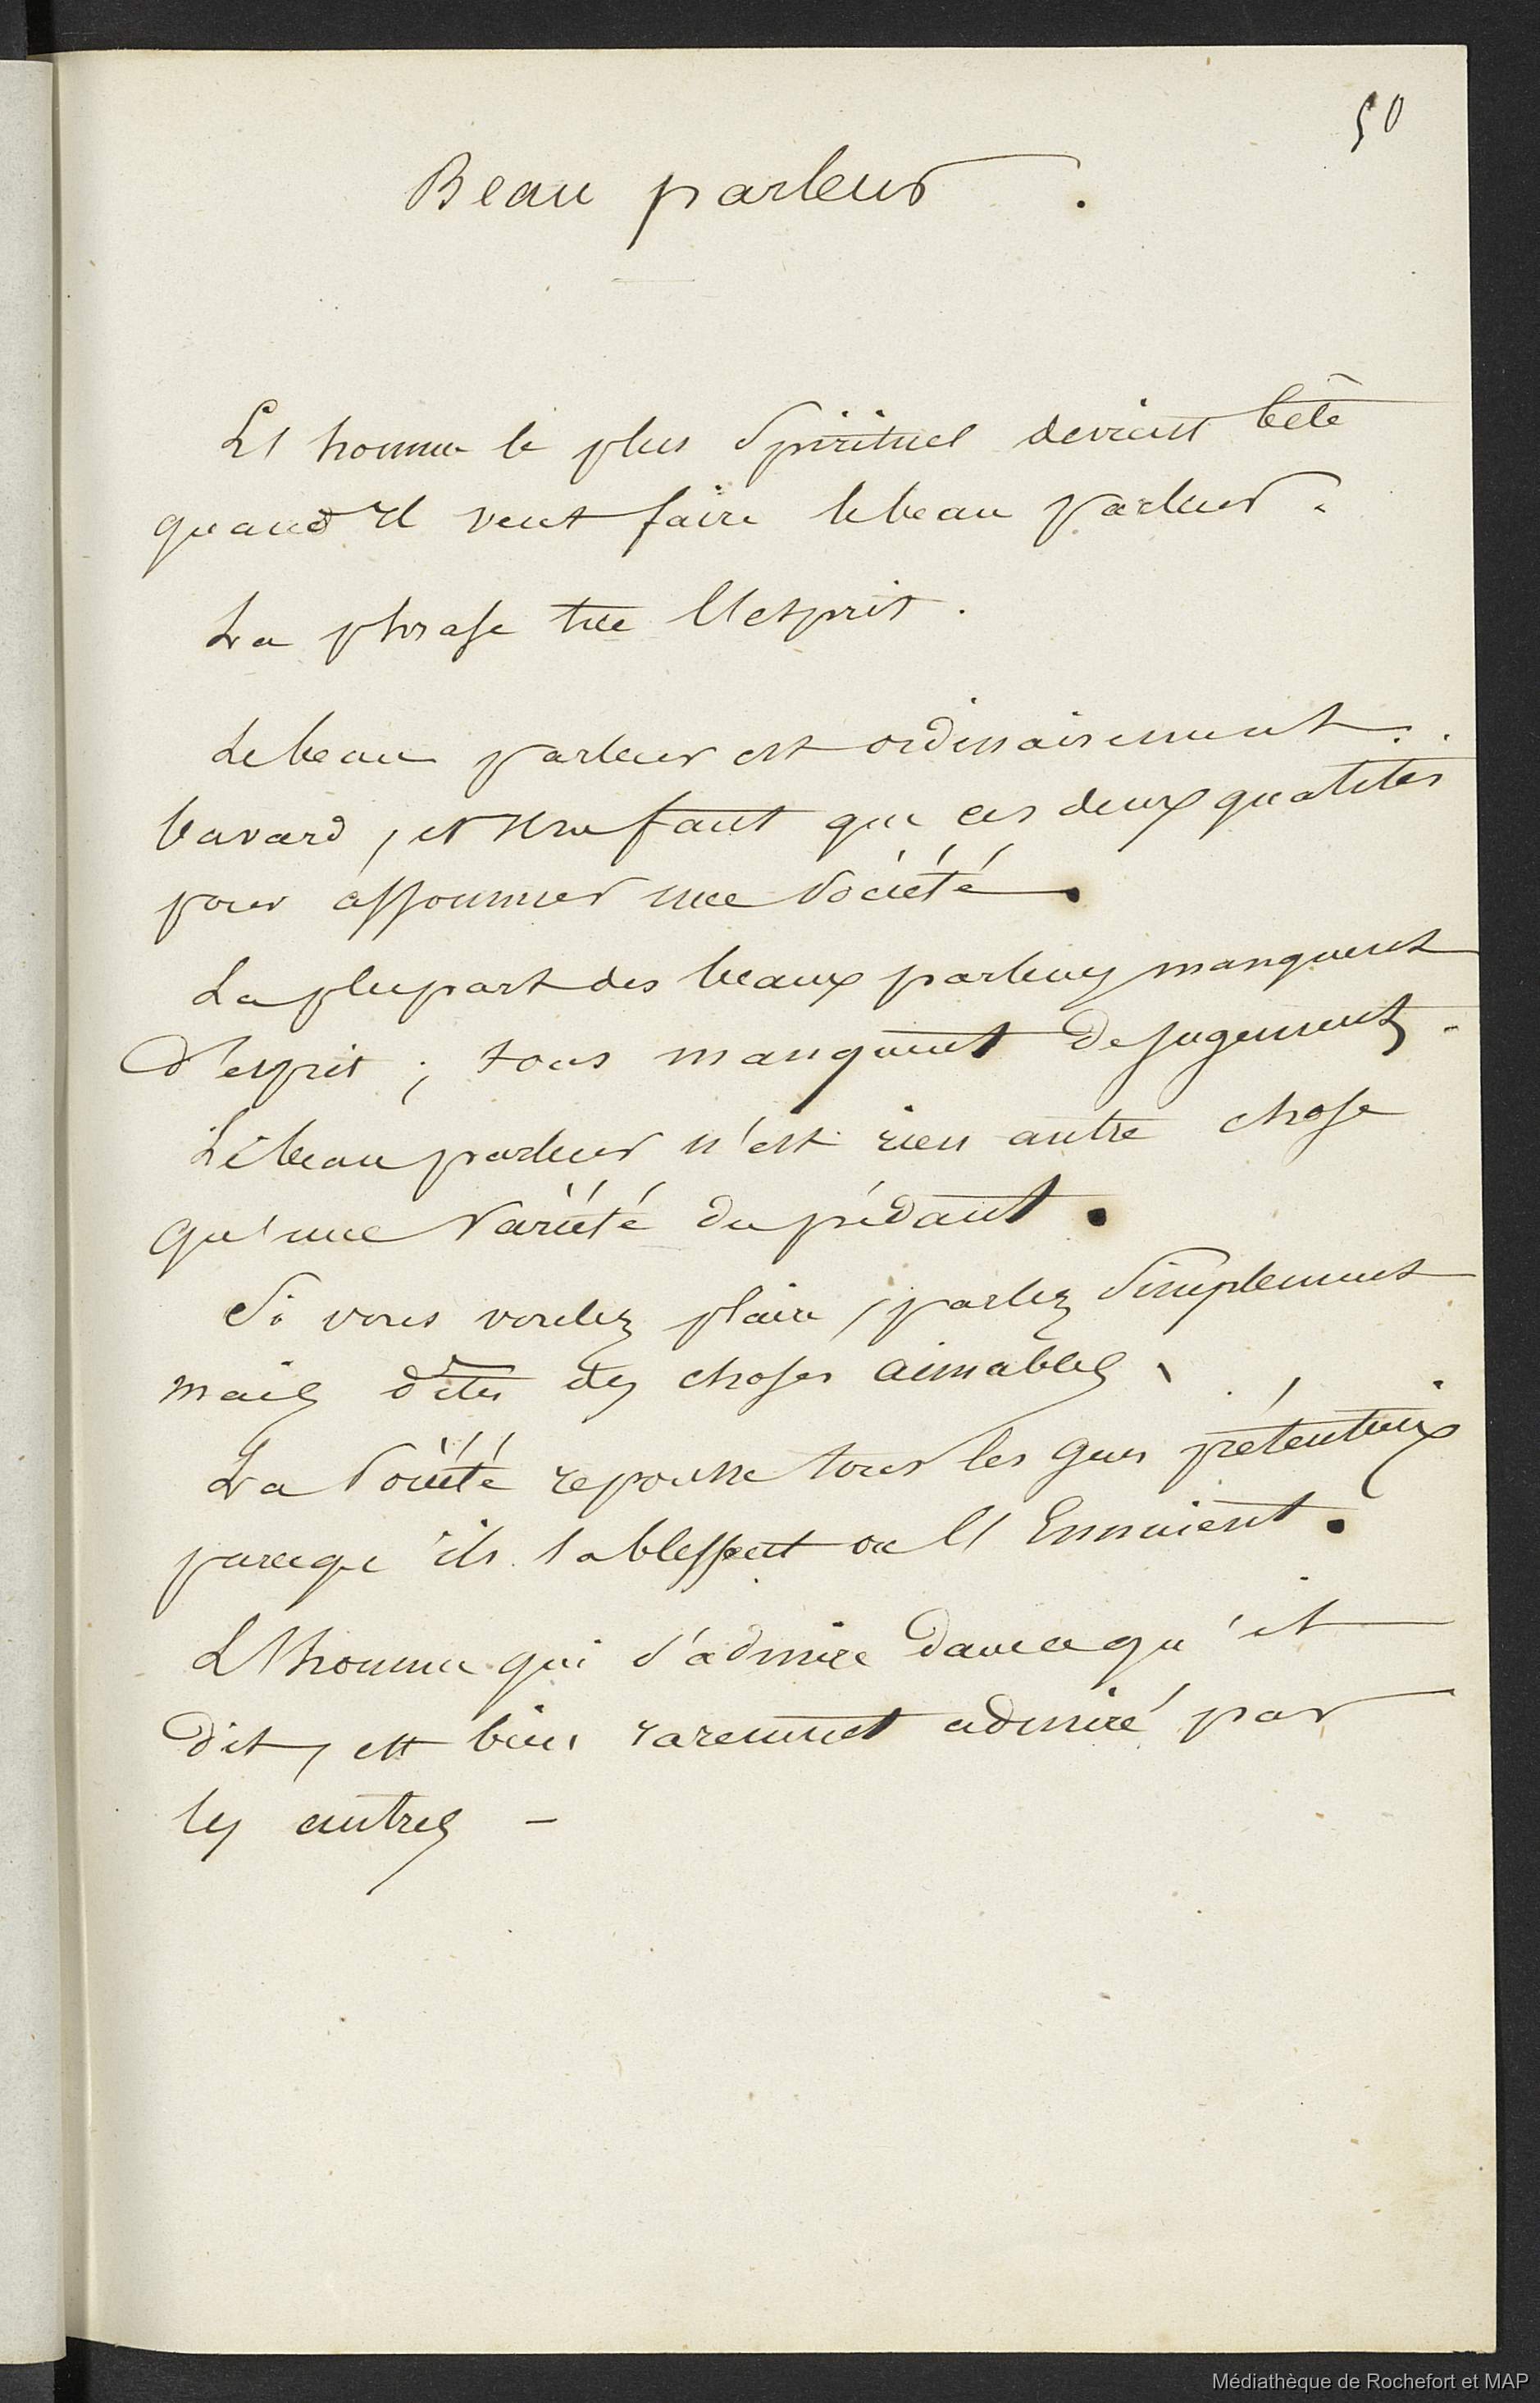 50
Beau parleur.
L'homme le plus spirituel devient bête
quand il veut faire le beau parleur.
La phrase tue l'esprit.
Le beau parleur est ordinairement
bavard, et il ne faut que ces deux qualités
pour assommer une société.
La plupart des beaux parleurs manquent
d'esprit ; tous manquent de jugement.
Le beau parleur n'est rien autre chose
qu'une variété du pédant.
Si vous voulez plaire, parlez simplement
mais dîtes des choses aimables.
La société repousse tous les gens prétentieux
parcequ'ils la blessent ou l'ennuient.
L'homme qui s'admire dans ce qu'il
dit, est bien rarement admiré par
les autres -
Médiathèque de Rochefort et MAP